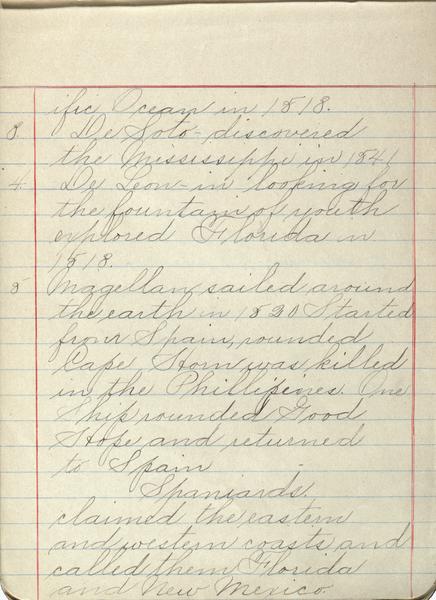 ific Ocean in 1513.
3. De Soto - discovered
the Mississippi in 1541
4. De Leon - in looking for
the fountain of youth
explored Florida in
1513.
5 Magellan sailed around
the earth in 1520 Started
from Spain, rounded
Cape Horn was killed
in the Phillipines. One
ship rounded Good
Hope and returned
to Spain
Spaniards.
claimed the eastern
and western coasts and
called them Florida
and New Mexico.